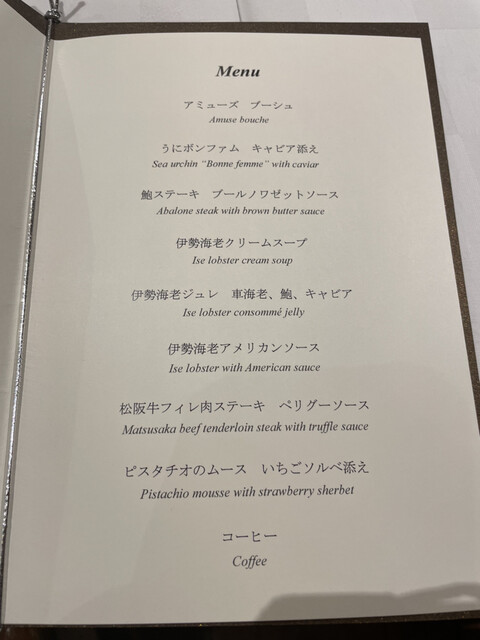 Menu
アミューズ　ブーシュ
Amuse bouche
うにボンファム　キャビア添え
Sea urchin “Bonne femme” with caviar
鮑ステーキ　ブールノワゼットソース
Abalone steak with brown butter sauce
伊勢海老クリームスープ
Ise lobster cream soup
伊勢海老ジュレ　車海老、鮑、キャビア
Ise lobster consommé jelly
伊勢海老アメリカンソース
Ise lobster with American sauce
松阪牛フィレ肉ステーキ　ペリグーソース
Matsusaka beef tenderloin steak with truffle sauce
ピスタチオのムース　いちごソルベ添え
Pistachio mousse with strawberry sherbet
コーヒー
Coffee